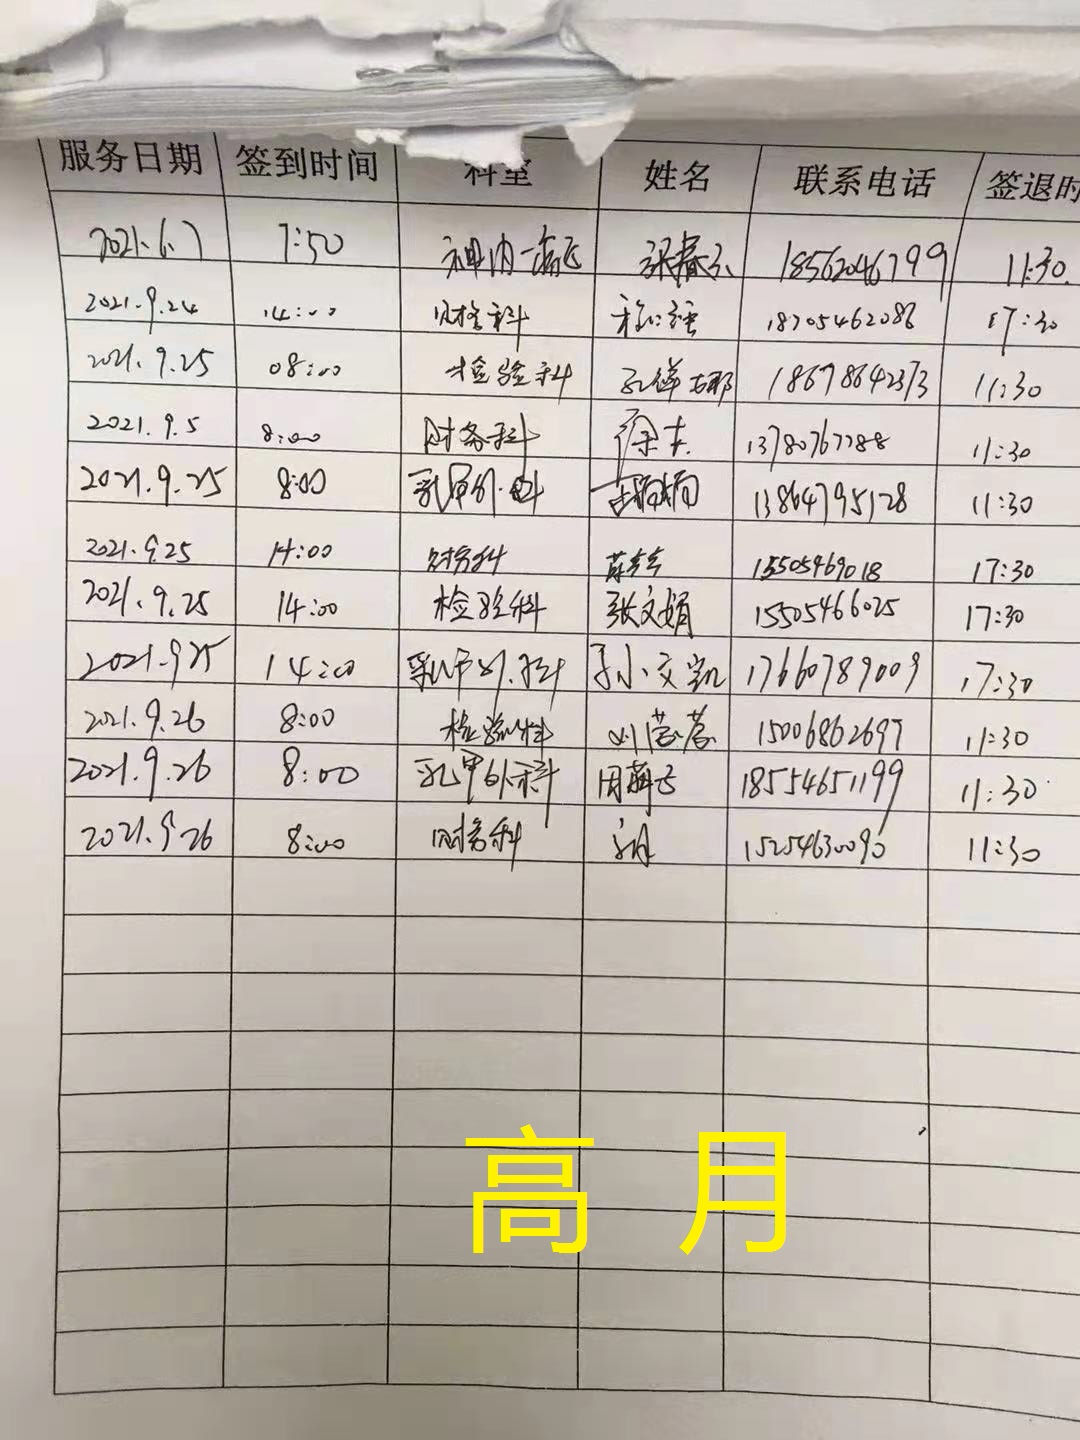 服务日期 签到时间 科室 姓名 联系电话 签退时
2021.6.7 7:50 神内一 18562046799 11:30
2021.9.24 14:00 科 18705462086 17:30
2021.9.25 08:00 检验科 18678642373 11:30
2021.9.5 8:00 财务科 徐 13780767288 11:30
2021.9.25 8:00 乳甲外科 13864795128 11:30
2021.9.25 14:00 财务科 15505469018 17:30
2021.9.25 14:00 检验科 张文娟 15505466025 17:30
2021.9.25 14:00 乳甲外科 17660789009 17:30
2021.9.26 8:00 检验科 刘 15006862697 11:30
2021.9.26 8:00 乳甲外科 周 18554651199 11:30
2021.9.26 8:00 财务科 15254630090 11:30
高 月